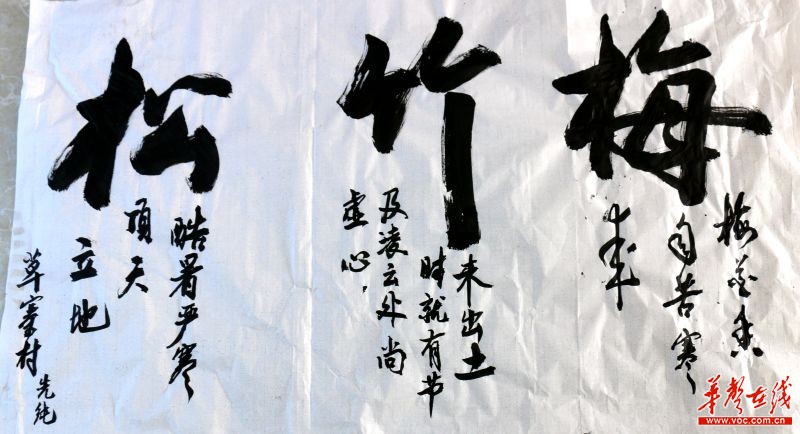 梅
梅花香
自苦寒
来
竹
未出土
时就有节
及凌云处尚
虚心，
松
酷暑严寒
顶天
立地
草寨村 先纯
华声在线
www.voc.com.cn